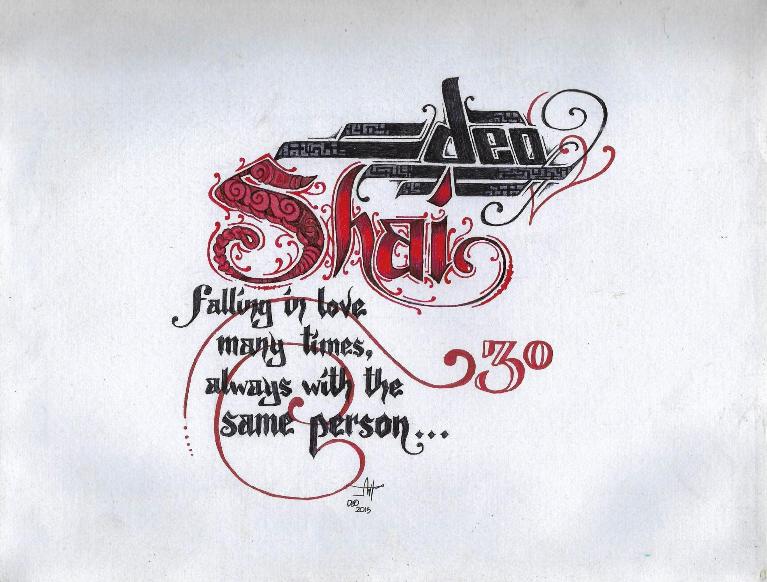 deo
Shai
falling in love
many times,
30
always with the
same person...
DEO
2015